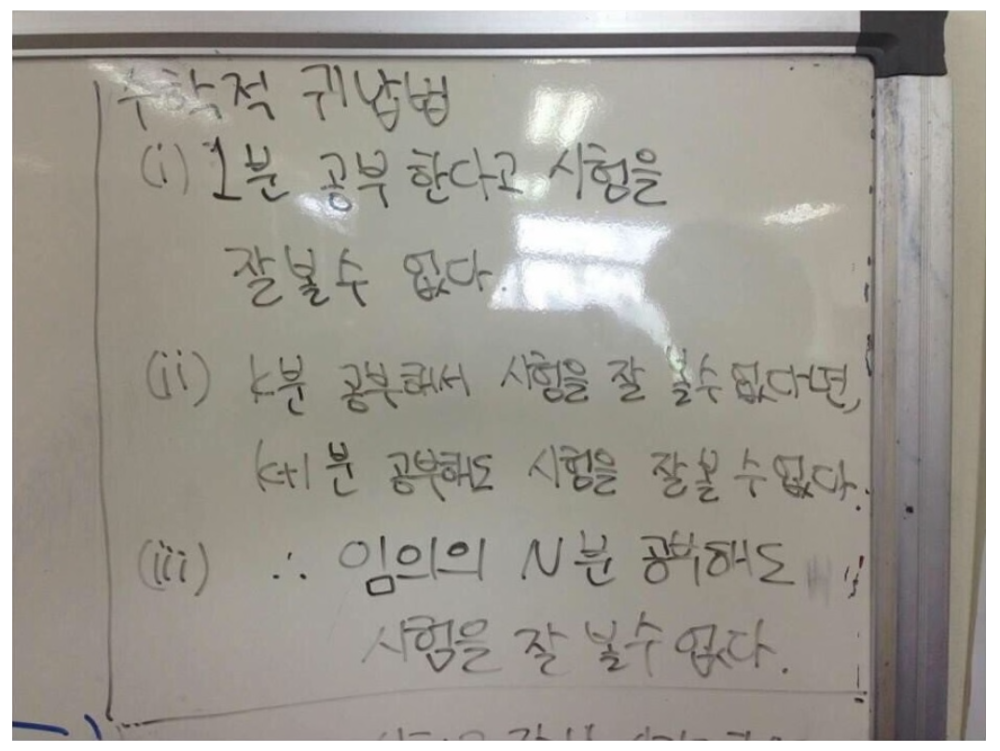 수학적 귀납법
(i) 1분 공부 한다고 시험을
잘볼수 없다.
(ii) k분 공부해서 시험을 잘 볼수 없다면,
k+1분 공부해도 시험을 잘볼 수 없다.
(iii) ∴ 임의의 N분 공부해도
시험을 잘 볼수 없다.